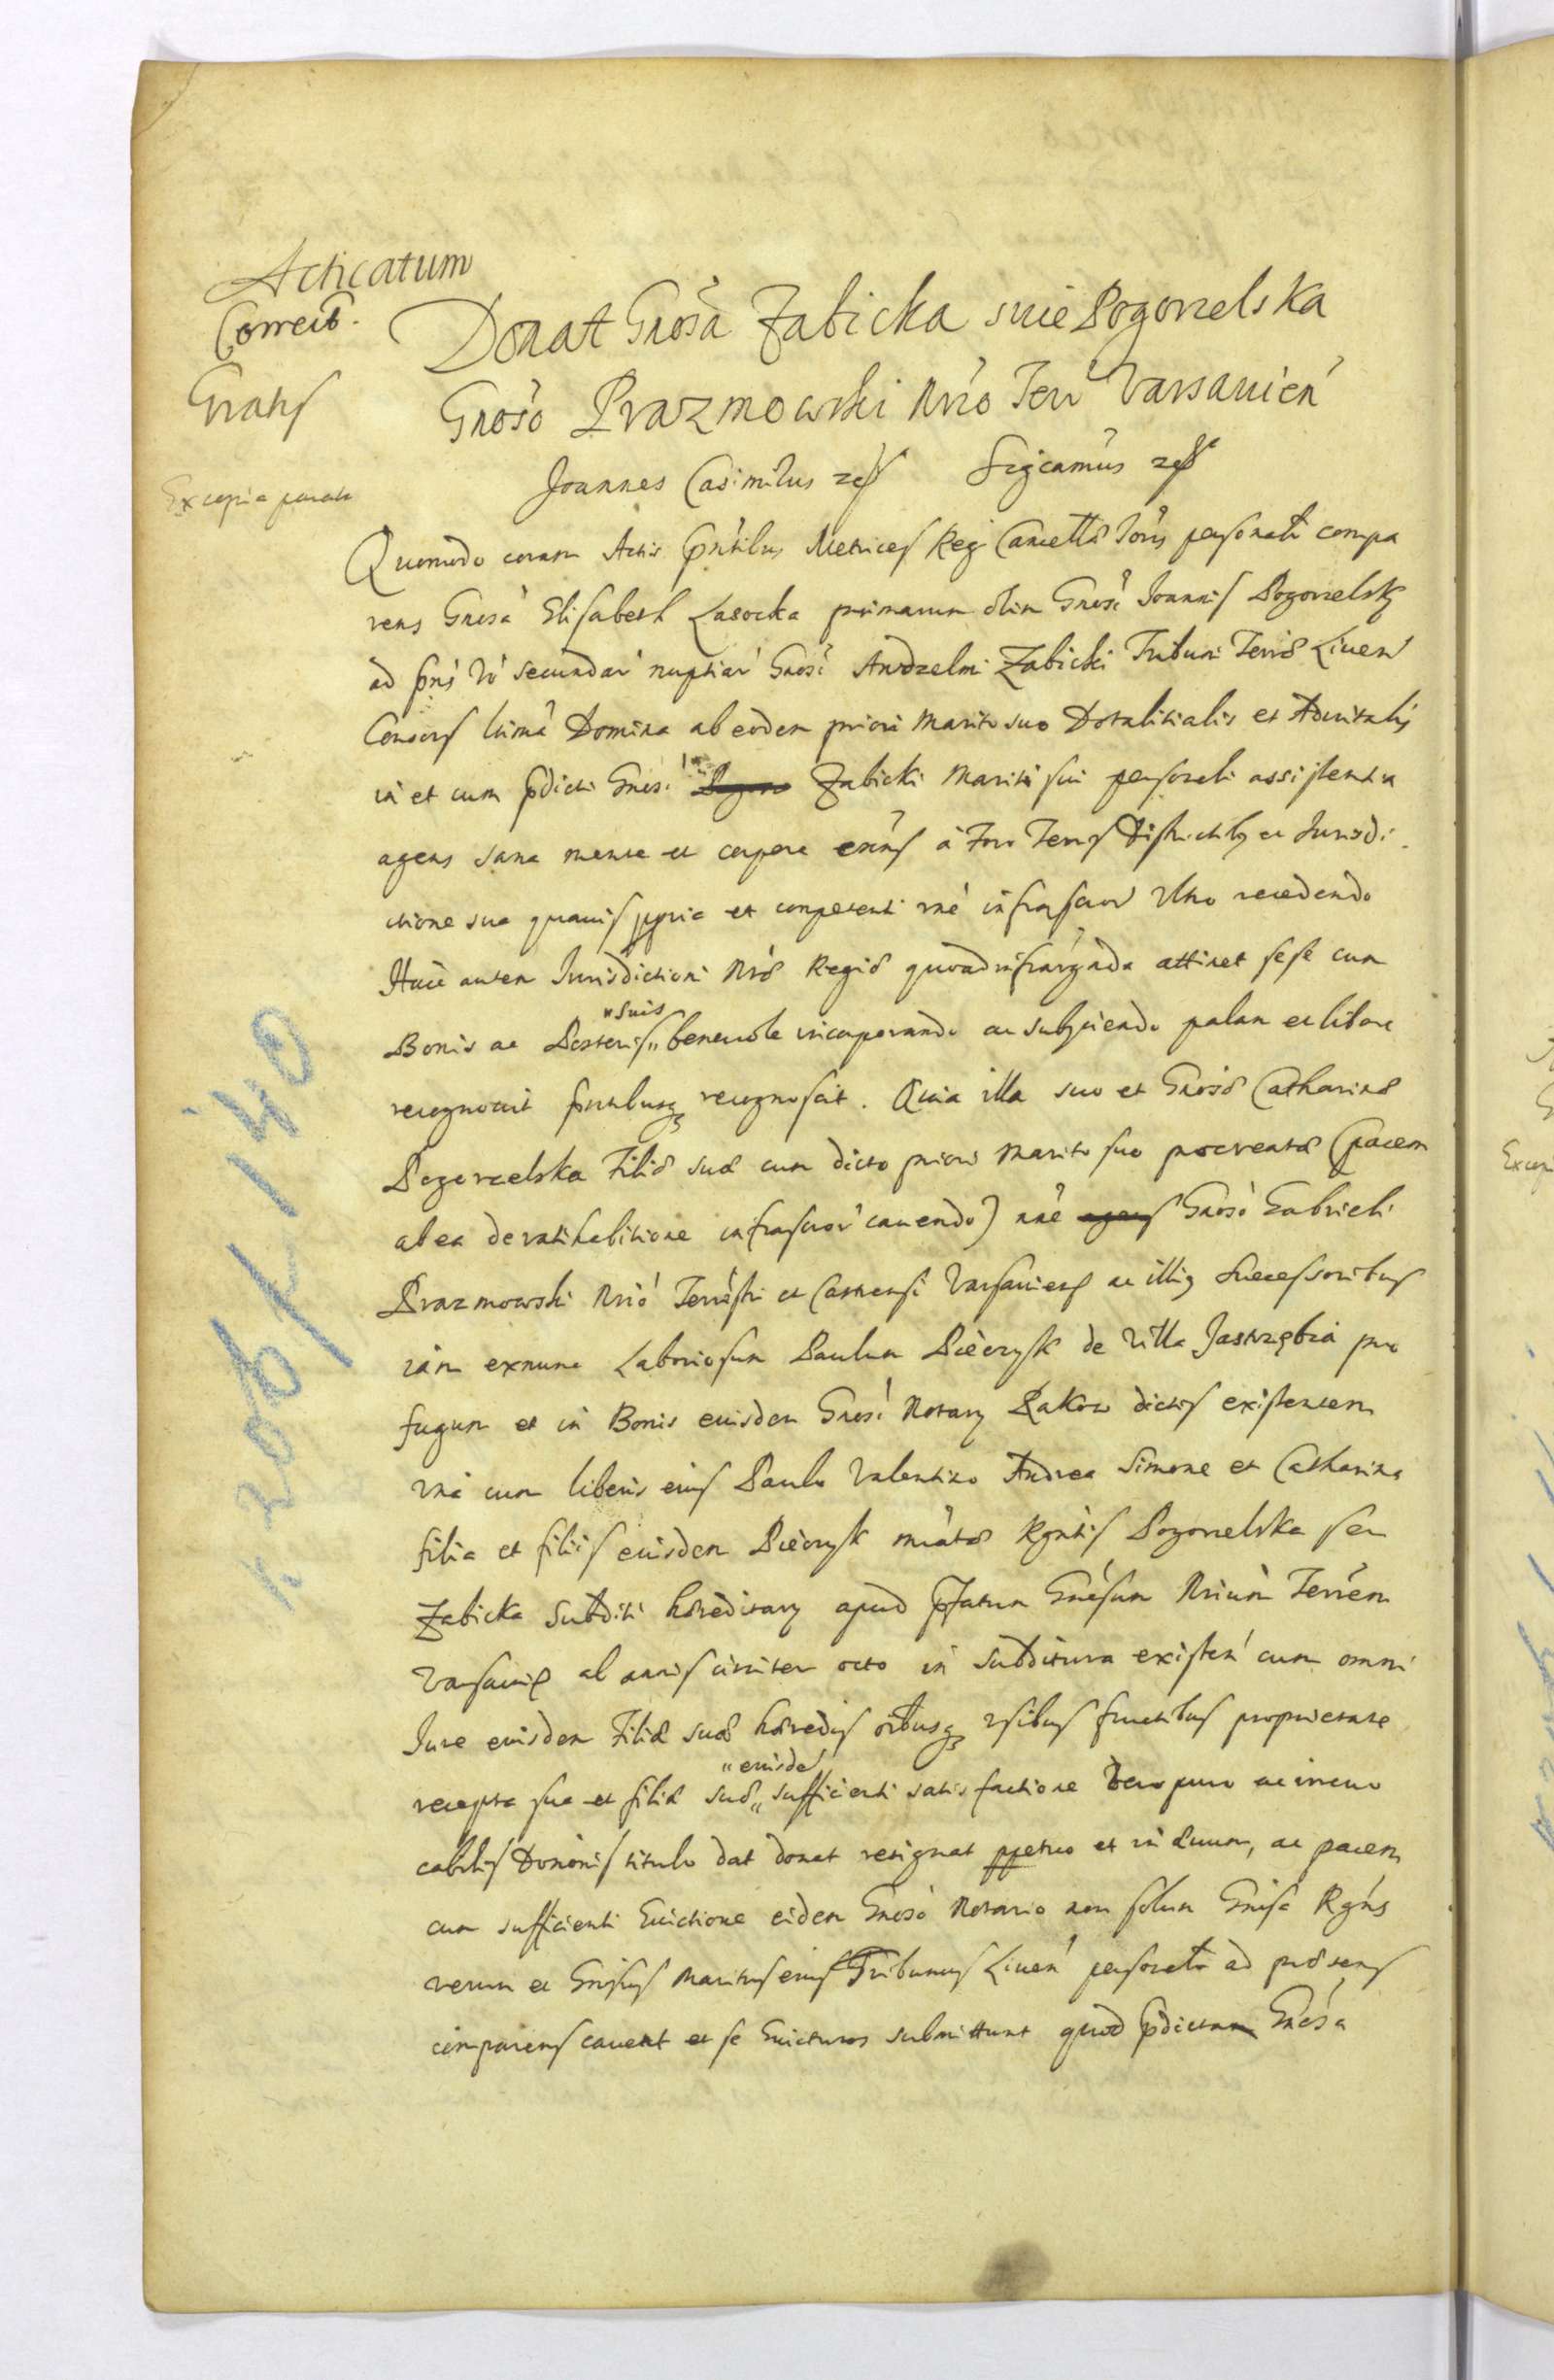 Acticatum
Correct.
Gratis
Excopia parata
Donat Gnosa Zabicka sive Pogorzelska
Gnoso Prazmowski Nrio Terr Varsavien
Joannes Casimirus etc Sigcamus etc
Quomodo coram Actis pntibus Metrices Regni Cancell ioris personalr compa
rens Gnosa Elisabeth Lasocka primarum olim Gnosi Joannis Pogorzelsky
ad pns vo secundar nuptiar Gnosi Andzelmi Zabicki Tribuni Terrae Liven
Consors ltima Domina ab eodem priori Marito suo Dotalitialis et Advitalis
in et cum pdicti Gnosi Zabicki Mariti sui personali assistentia
agens sana mente et corpore exns à Foro Terris Districtibz ac Jurisdi
ctione sua quavis ppria et competenti rne infrascror Ultro recedendo
Huic autem Jurisdictioni Nrae Regiae quoad infrargnda attinet sese cum
Bonis ac Posteris "suis benevole incorporando ac subjiciendo palam ac libere
recognovit pntibusq recognoscit. Quia illa suo et Gnosae Catharinae
Pogorzelska Filiae suae cum dicto priori Marito suo procreatae (pacem
ab ea de ratihabitione infrascror cavendo) nne agens Gnoso Gabrieli
Prazmowski Nrio Terrestri et Castrensi Varsavien ac illig Successoribus
iam exnunc Laboriosum Paulum Piećzyk de Villa Jastrzębia pro
fugum et in Bonis eiusdem Gnosi Notary Rakow dictis existentem
una cum liberis eius Paulo Valentino Andrea Simone et Catharina
filia et filiis eiusdem Piećzyk mratae Rgntis Pogorzelska seu
Zabicka Subditi haereditary apud pfatum Gnosum Nrium Terrem
Varsavien ab annis circiter octo in subditura existen cum omni
Jure eiusdem Filiae suae haeredis oibusq usibus fructibus proprietate
recepta sua et filiae suae "eiusde sufficienti satisfactione vero puro ac irrevo
cabilis Dononis titulo dat donat resignat ppetuo et in aevum, ac pacem
cum sufficienti Evictione eidem Gnoso Notario non solum Gnosa Rgns
verum et Gnosus Maritus eius Tribunus Liven personalr ad praesens
comparens cavent et se Evicturos submittunt quod pdictam Gnosa
k. 206/k. 140